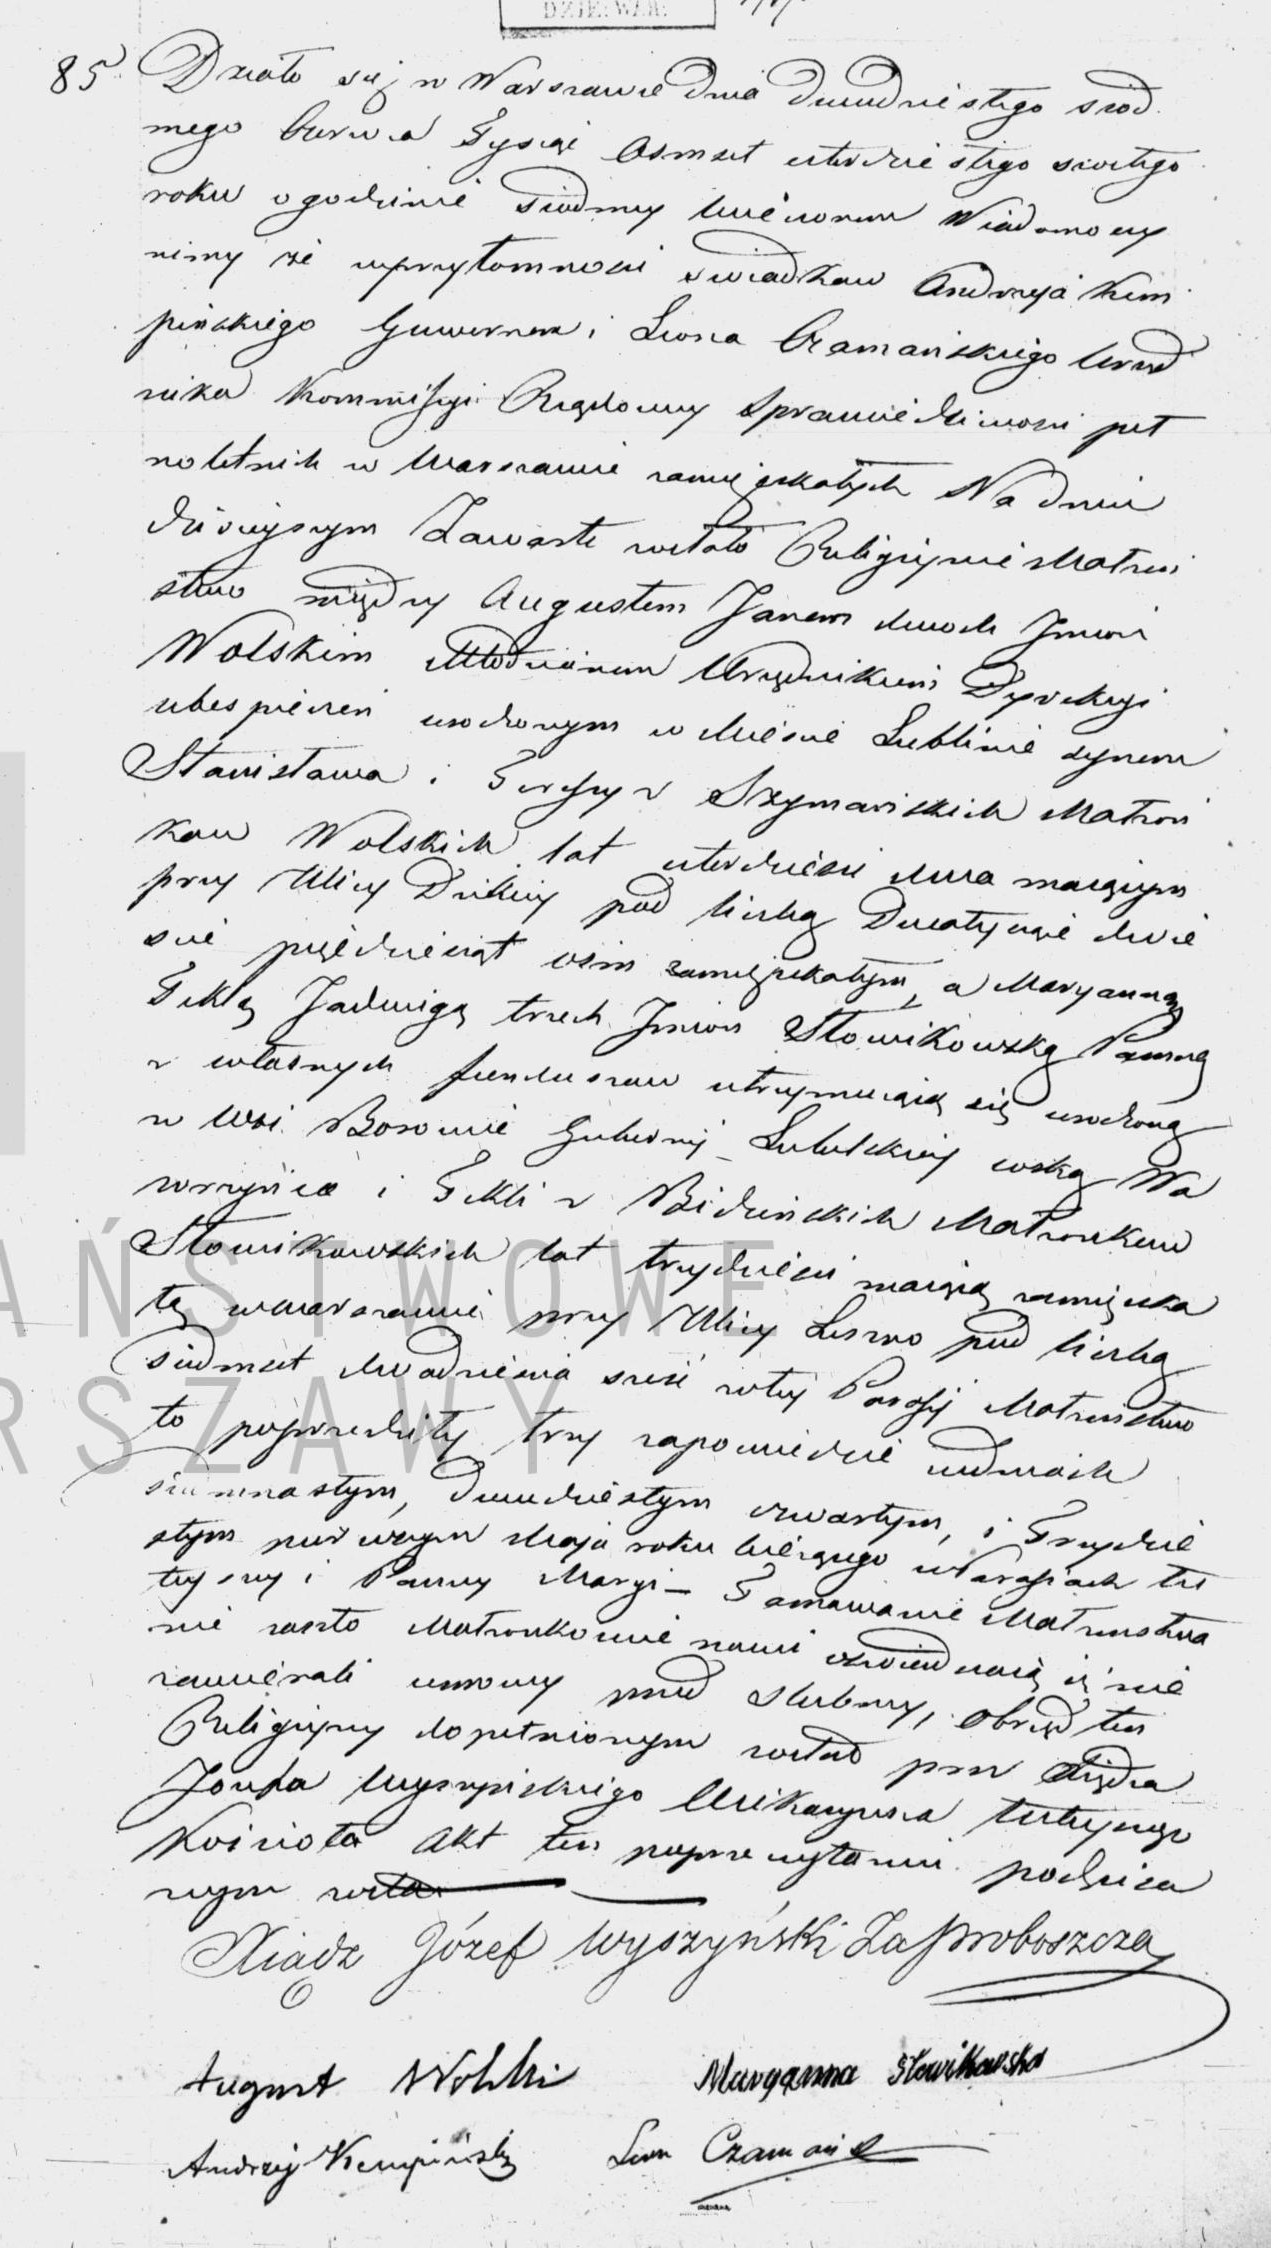 DZIE. WAR.
85. Działo się w Warszawie dnia dwudziestego siód
mego Czerwca Tysiąc Osmset czterdziestego szóstego
roku o godzinie siódmey wieczorem Wiadomo czy
nimy że wprzytomności swiadkow Andrzeja Kem
pińskiego Guwernera i Leona Czamańskiego Urzęd
nika Kommissyi Rządowey Sprawiedliwosci peł
noletnich w Warszawie zamięszkałych Na dniu
dzisieyszym Zawarte zostało Religijnie Małżeń
stwo między Augustem Janem dwoch Jmion
Wolskim Młodzianem Urzędnikiem Dyrekcyi
ubespieczeń urodzonym w Miescie Lublinie synem
Stanisława i Teressy z Szymańskich Małżon
kow Wolskich lat czterdzieści dwa maiącym
przy Ulicy Dzikiey pod liczbą Dwatysiące dwie
scie pięćdziesiąt ośm zamięszkałym, a Maryanną
Teklą Jadwigą trzech Jmion Słowikowską Panną
z własnych funduszow utrzymuiącą się urodzoną
w Wsi Borowie Gubernij Lubelskiey corką Wa
wrzyńca i Tekli z Bidzińskich Małżonkow
Słowikowskich lat trzydzieści maiącą zamięszka
łą w Warszawie przy Ulicy Leszno pod liczbą
siedmset dwadzieścia sześć wtey Parafij Małżeństwo
to poprzedziły trzy zapowiedzie w dniach
siedmnastym, dwudziestym czwartym, i Trzydzie
stym pierwszym Maja roku bieżącego w Parafiach tu
teyszey i Panny Maryi – Tamowanie Małżeństwa
nie zaszło Małżonkowie nowi oswiadczaią iż nie
zawierali umowy przed slubney, Obrzęd ten
Religijny dopełnionym został przez Xiędza
Jozefa Wyszyńskiego Wikaryusza tuteyszego
Kościoła Akt ten poprzeczytaniu podpisa
nym został
Xiądz Józef Wyszyński Za Proboszcza
August Wolski Maryanna Słowikowska
Andrzej Kempiński Leon Czamański
PAŃSTWOWE
WARSZAWY